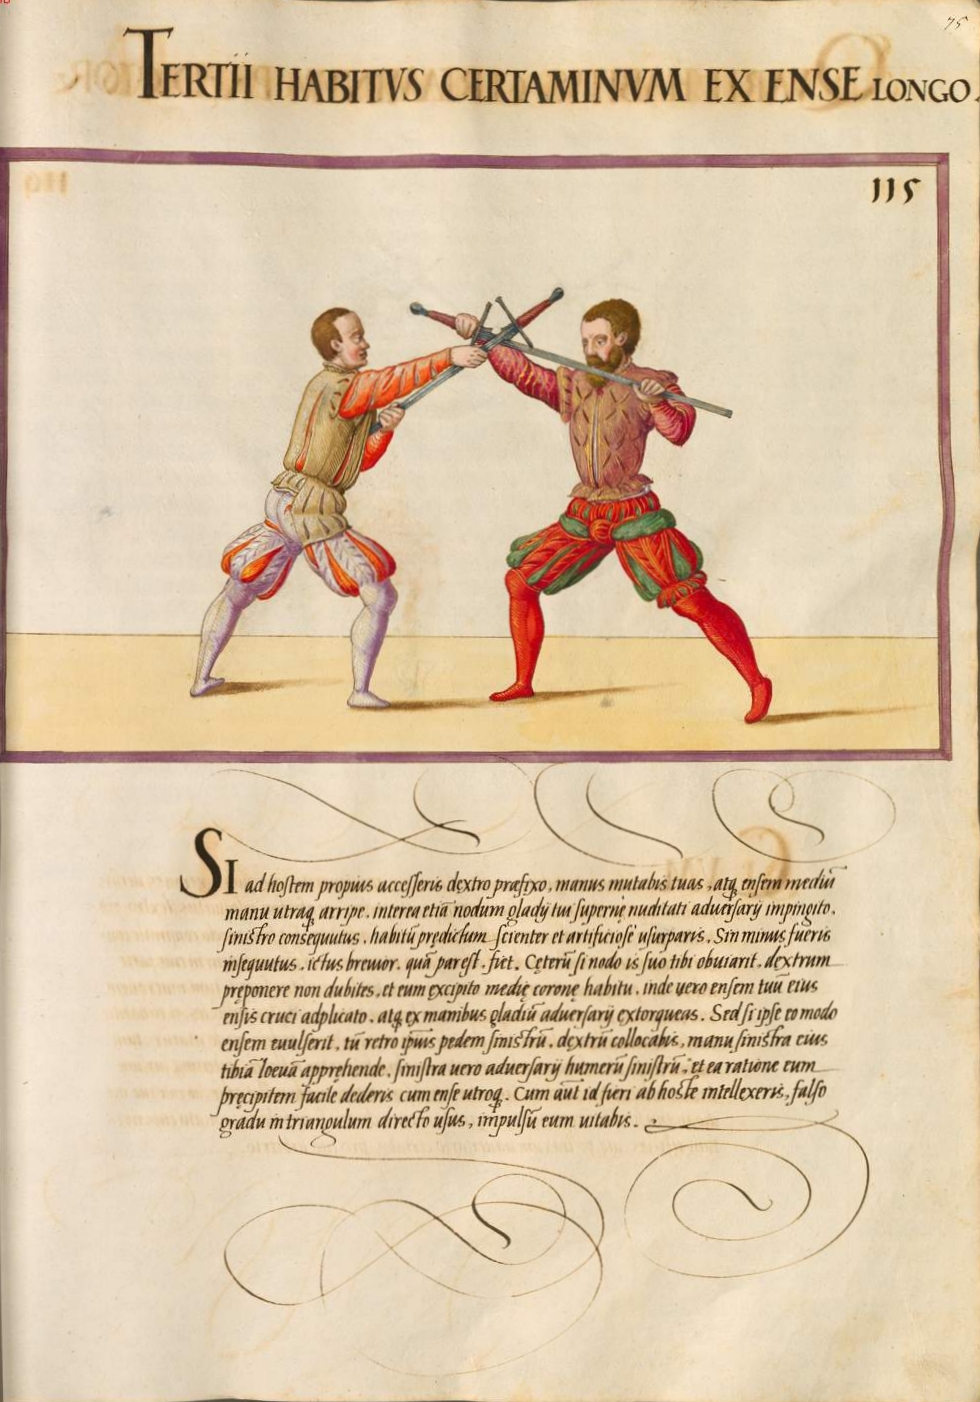 75
TERTII HABITVS CERTAMINVM EX ENSE LONGO.
115
SI ad hostem propius accesseris dextro præfixo, manus mutabis tuas, atq ensem mediū
manu utraq arripe, interea etiā nodum gladij tui supernę nuditati aduersarij impingito.
sinistro consequutus, habitū prędictum scienter et artificiosè usurparis. Sin minus fueris
insequutus, ictus breuior, quā par est, fiet. Cęterū si nodo is suo tibi obuiarit, dextrum
pręponere non dubites, et eum excipito medię coronę habitu, inde vero ensem tuū eius
ensis cruci adplicato, atq ex manibus gladiū aduersarij extorqueas. Sed si ipse eo modo
ensem euulserit, tū retro ipsius pedem sinistrū, dextrū collocabis, manu sinistra eius
tibiā loeuā apprehende, sinistra uero aduersarij humerū sinistrū, et ea ratione eum
pręcipitem facile dederis cum ense utroq. Cum aut id fieri ab hoste intellexeris, falso
gradu in triangulum directo usus, impulsū eum uitabis.